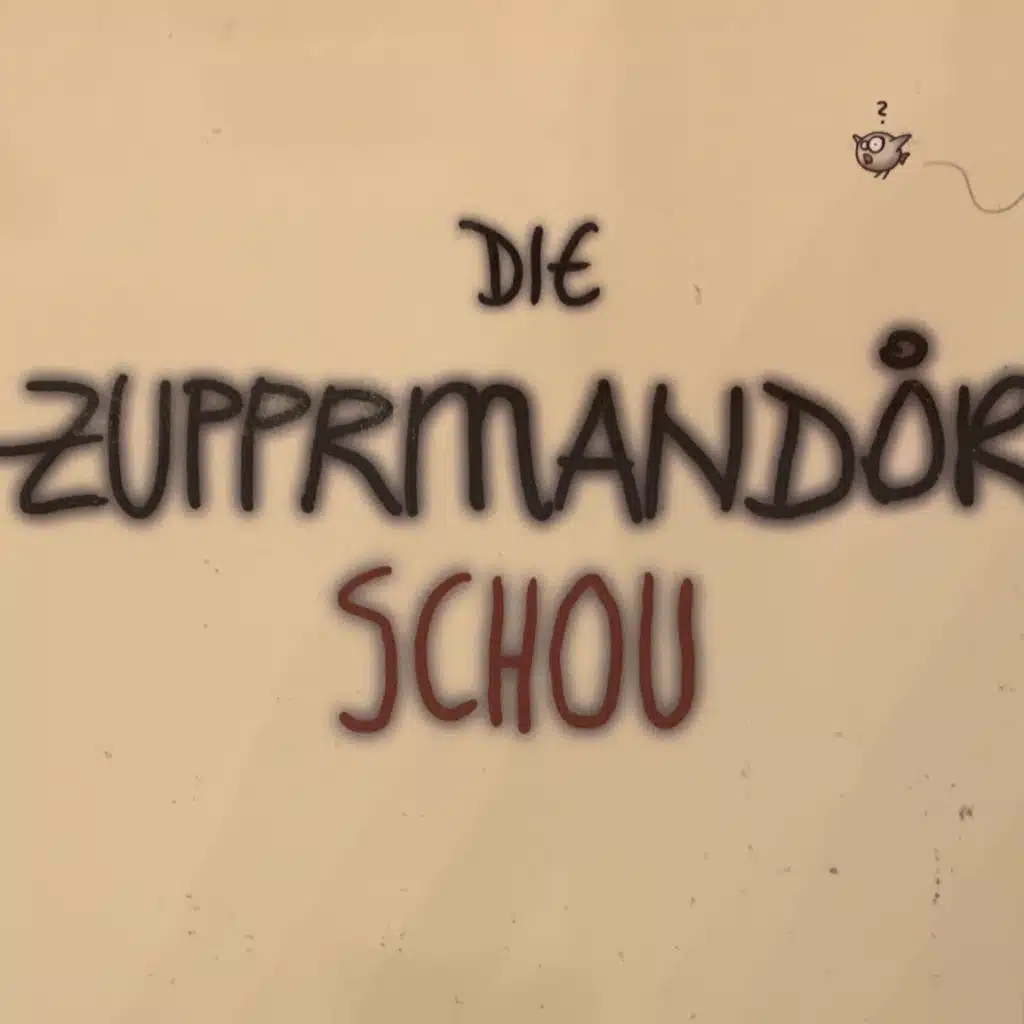 ?
DIE
ZUPPRMANDÅR
SCHOU